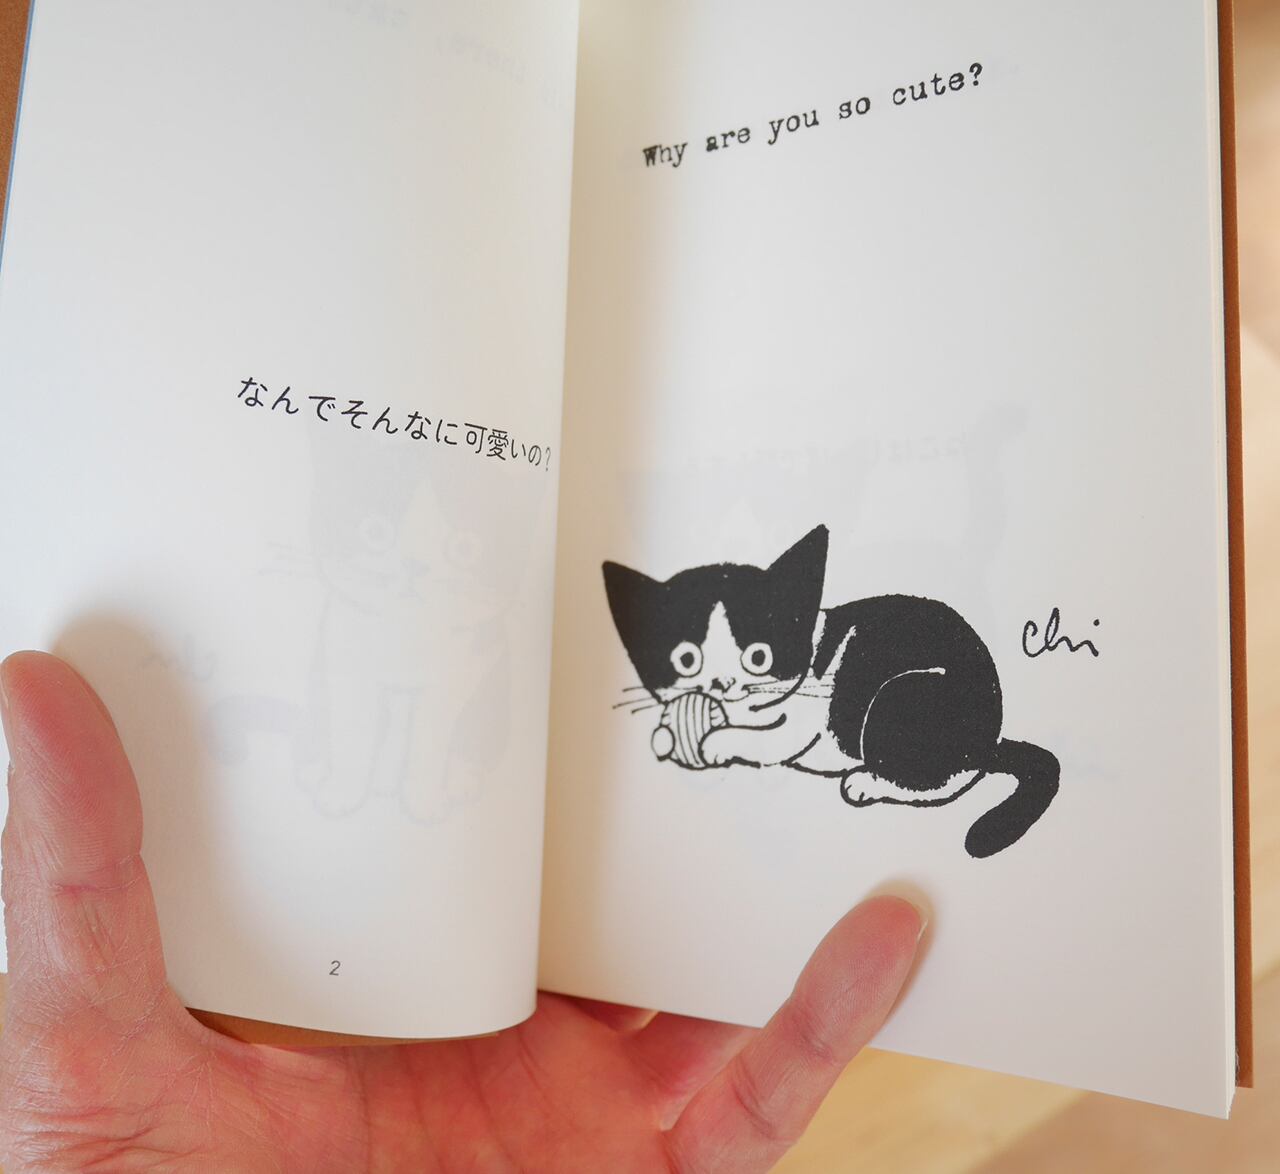 なんでそんなに可愛いの?
2
Why are you so cute?
chi